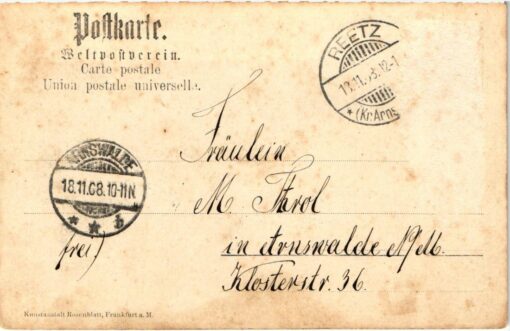 Postkarte.
Weltpostverein.
Carte postale
Union postale universelle.
REETZ
18.11.08.12-1
* (Kr.Arns
ARNSWALDE
18.11.08.10-11N
* * b
Fräulein
M. Throl
in Arnswalde N/M.
Klosterstr. 36.
frei)
Kunstanstalt Rosenblatt, Frankfurt a. M.